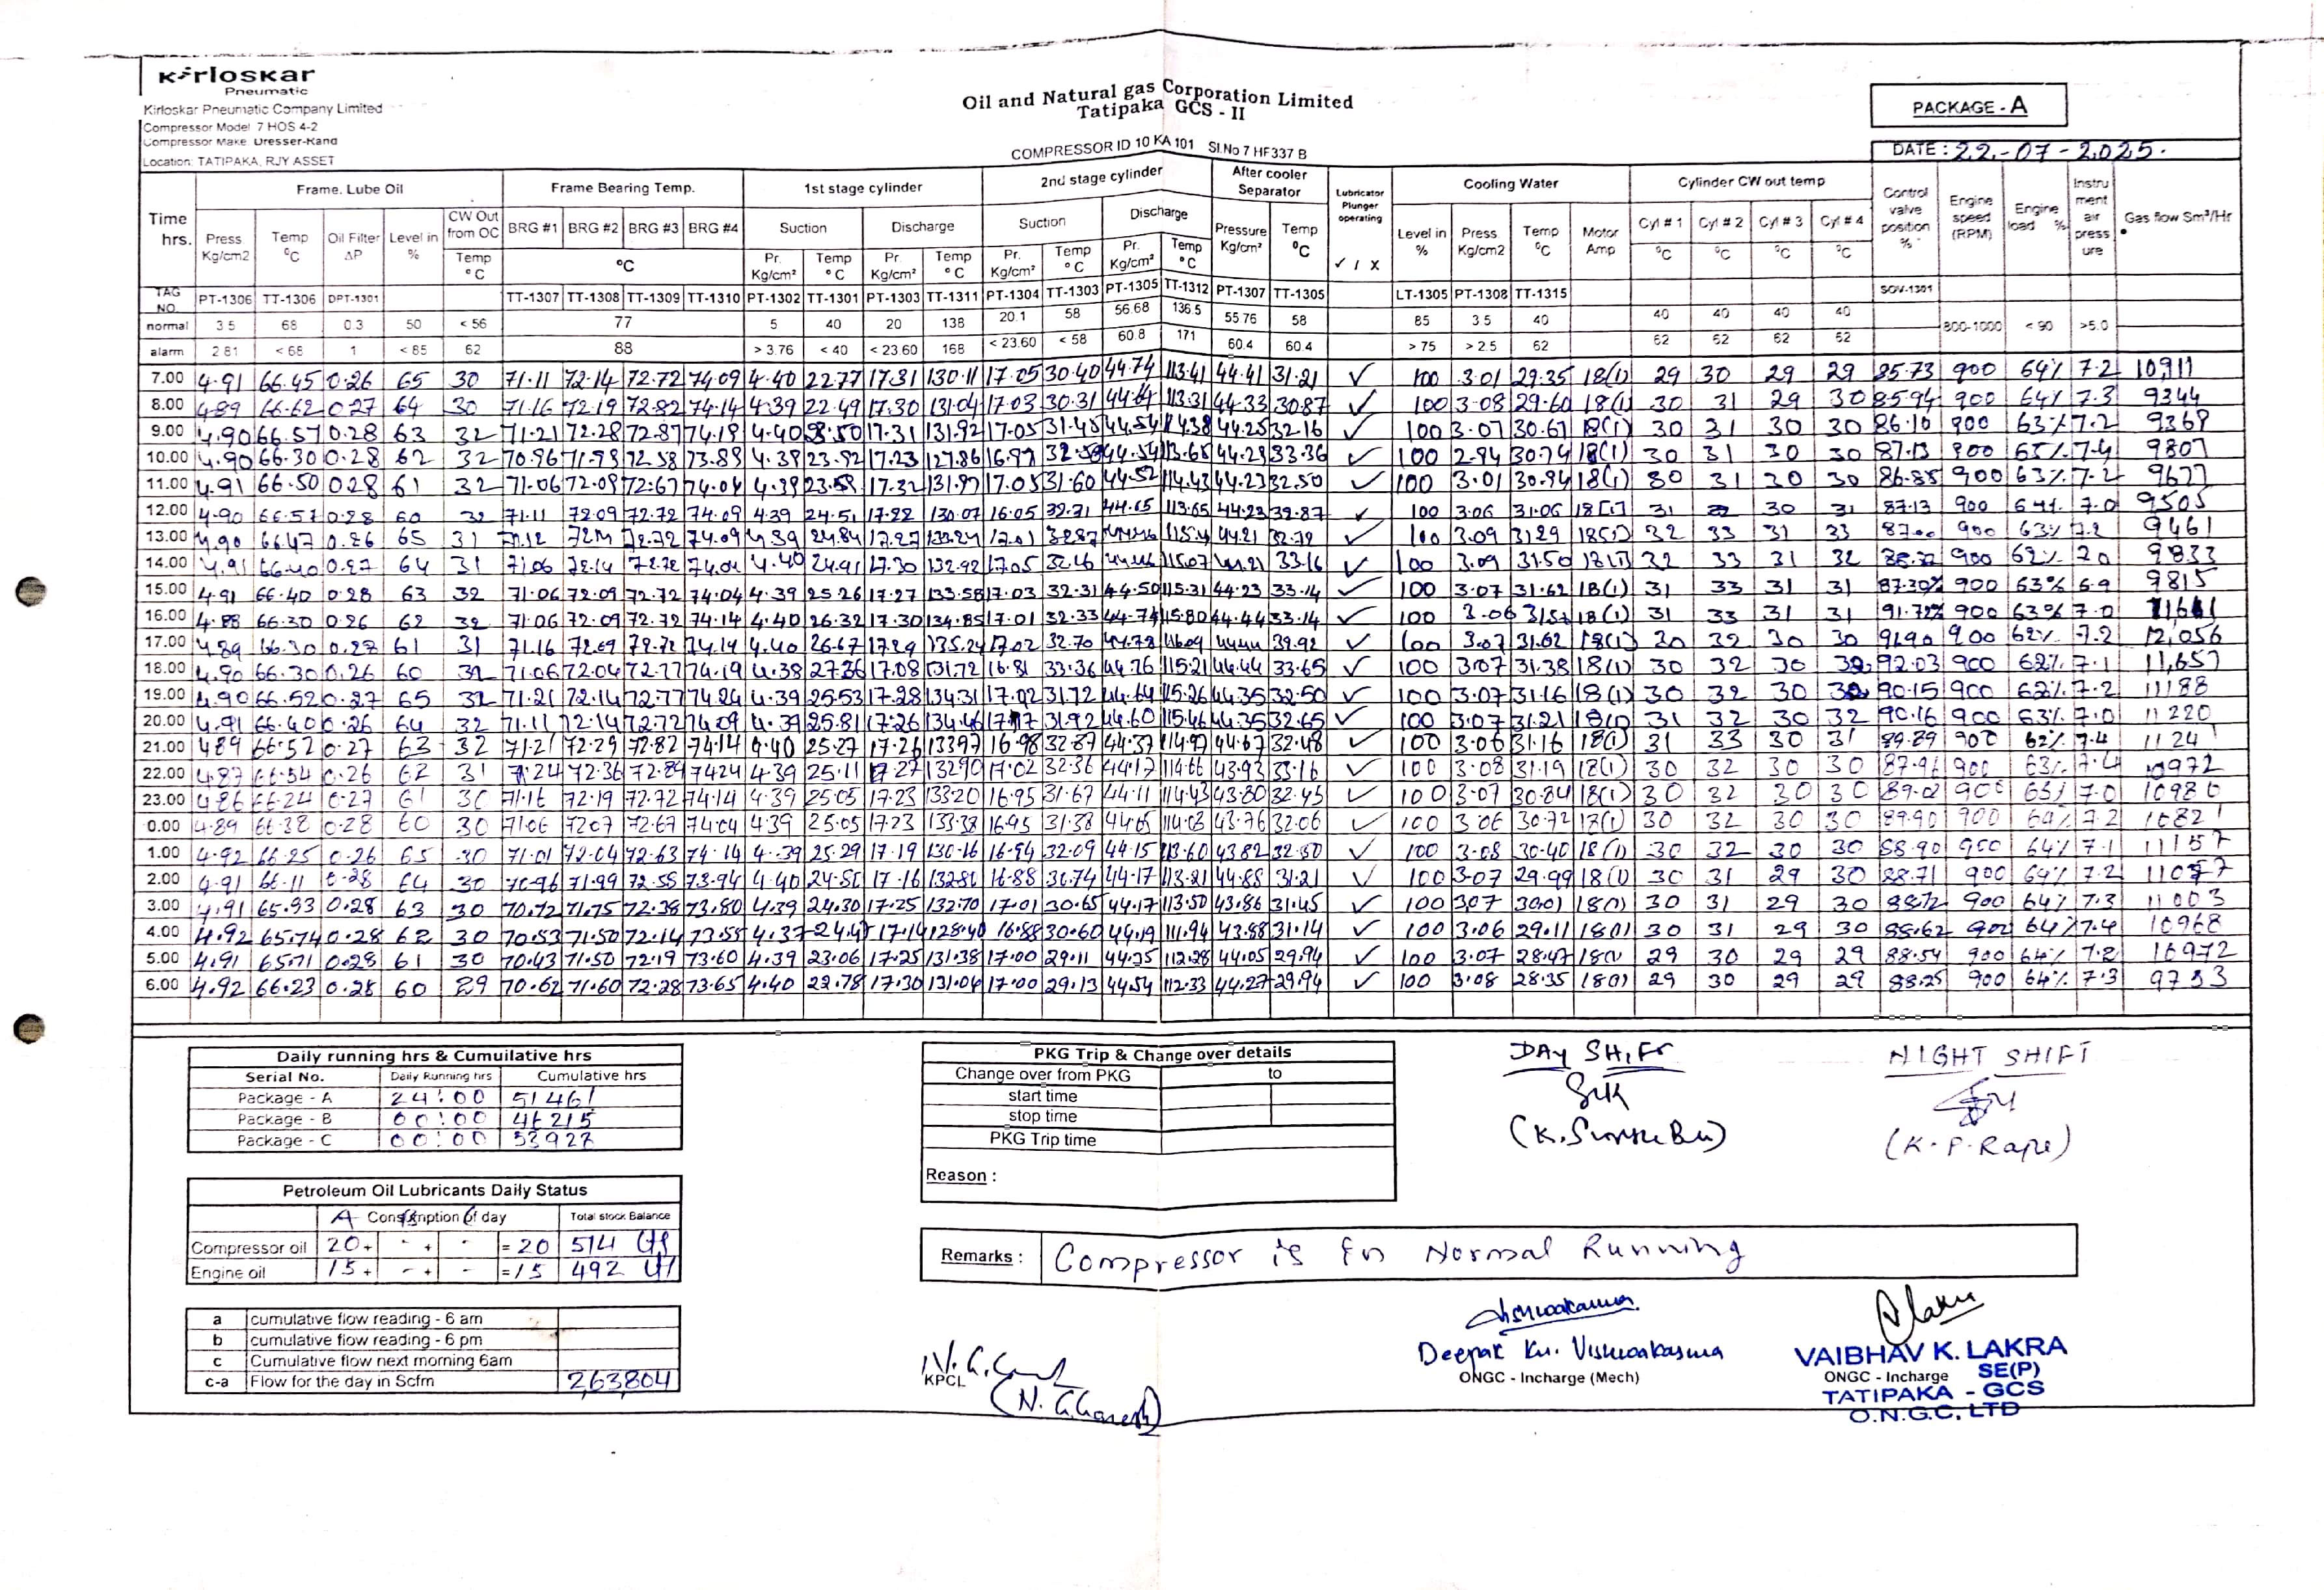 Kirloskar
Pneumatic
Kirloskar Pneumatic Company Limited
Compressor Model 7 HOS 4-2
Compressor Make. Dresser-Rand
Location: TATIPAKA, RJY ASSET
Oil and Natural gas Corporation Limited
Tatipaka GCS - II
COMPRESSOR ID 10 KA 101 Sl.No 7 HF337 B
PACKAGE - A
DATE : 22-07-2025.
Time hrs. Frame. Lube Oil Frame Bearing Temp. 1st stage cylinder 2nd stage cylinder After cooler Separator Lubricator Plunger operating Cooling Water Cylinder CW out temp Control valve position % Engine speed (RPM) Engine load % Instrument air pressure Gas flow Sm³/Hr
Press Kg/cm2 Temp °C Oil Filter ΔP Level in % CW Out from OC Temp °C BRG #1 BRG #2 BRG #3 BRG #4 °C Suction Discharge Suction Discharge Pressure Kg/cm² Temp °C ✓ / X Level in % Press Kg/cm2 Temp °C Motor Amp Cyl # 1 Cyl # 2 Cyl # 3 Cyl # 4
Pr. Kg/cm² Temp °C Pr. Kg/cm² Temp °C Pr. Kg/cm² Temp °C Pr. Kg/cm² Temp °C °C °C °C °C
TAG NO. PT-1306 TT-1306 DPT-1301 TT-1307 TT-1308 TT-1309 TT-1310 PT-1302 TT-1301 PT-1303 TT-1311 PT-1304 TT-1303 PT-1305 TT-1312 PT-1307 TT-1305 LT-1305 PT-1308 TT-1315 SOV-1301
normal 3.5 68 0.3 50 < 56 77 5 40 20 138 20.1 58 56.68 136.5 55.76 58 85 3.5 40 40 40 40 40 800-1000 < 90 >5.0
alarm 2.81 < 68 1 < 85 62 88 > 3.76 < 40 < 23.60 168 < 23.60 < 58 60.8 171 60.4 60.4 > 75 > 2.5 62 62 62 62 62
7.00 4.91 66.45 0.26 65 30 71.11 72.14 72.72 74.09 4.40 22.77 17.31 130.11 17.05 30.40 44.74 113.41 44.41 31.21 ✓ 100 3.01 29.35 18(1) 29 30 29 29 85.73 900 64% 7.2 10911
8.00 4.89 66.62 0.27 64 30 71.16 72.19 72.82 74.14 4.39 22.49 17.30 131.04 17.03 30.31 44.64 113.31 44.33 30.87 ✓ 100 3.08 29.60 18(1) 30 31 29 30 85.94 900 64% 7.3 9344
9.00 4.90 66.57 0.28 63 32 71.21 72.28 72.87 74.19 4.40 17.31 131.92 17.05 31.48 44.54 44.25 32.16 ✓ 100 3.07 30.67 18(1) 30 31 30 30 86.10 900 63% 7.2 9369
10.00 4.90 66.30 0.28 62 32 70.96 71.93 72.58 73.89 4.39 23.92 17.23 127.86 16.97 44.54 113.65 44.29 33.36 ✓ 100 2.94 30.74 18(1) 30 31 30 30 87.13 900 65% 7.4 9807
11.00 4.91 66.50 0.28 61 32 71.06 72.09 72.67 74.04 4.39 23.59 17.32 131.97 17.05 31.60 44.52 114.43 44.23 32.50 ✓ 100 3.01 30.94 18(1) 30 31 30 30 86.85 900 63% 7.2 9677
12.00 4.90 66.57 0.28 60 32 71.11 72.09 72.72 74.09 4.39 24.51 17.22 130.07 16.05 32.71 44.65 113.65 44.23 32.87 ✓ 100 3.06 31.06 18(1) 31 30 31 87.13 900 64% 7.0 9505
13.00 4.90 66.47 0.26 65 31 71.12 72.72 74.09 4.39 24.84 17.27 17.01 32.87 44.21 32.72 ✓ 100 3.09 31.29 18(1) 32 33 31 33 87.00 900 63% 7.2 9461
14.00 4.91 66.40 0.27 64 31 71.06 72.14 72.72 74.04 4.40 24.91 17.30 132.92 17.05 32.16 115.07 33.16 ✓ 100 3.09 31.50 18(1) 32 33 31 32 900 62% 9833
15.00 4.91 66.40 0.28 63 32 71.06 72.09 72.72 74.04 4.39 25.26 17.27 133.58 17.03 32.31 44.50 115.31 44.23 33.14 ✓ 100 3.07 31.62 18(1) 31 33 31 31 87.30% 900 63% 6.9 9815
16.00 4.88 66.30 0.26 62 32 71.06 72.09 72.72 74.14 4.40 26.32 17.30 134.85 17.01 32.33 44.74 115.80 44.44 33.14 ✓ 100 3.06 18(1) 31 33 31 31 91.72% 900 63% 7.0
17.00 4.89 66.30 0.27 61 31 71.16 72.09 72.72 74.14 4.40 26.67 17.29 135.24 17.02 32.70 44.78 ✓ 100 3.07 31.62 18(1) 30 32 30 30 91.90 900 62% 7.2 12,056
18.00 4.90 66.30 0.26 60 32 71.06 72.04 72.77 74.19 4.38 27.36 17.08 131.72 16.81 33.36 44.76 115.21 44.44 33.65 ✓ 100 3.07 31.38 18(1) 30 32 30 92.03 900 62% 7.1 11,657
19.00 4.90 66.52 0.27 65 32 71.21 72.14 72.77 74.24 4.39 25.53 17.28 134.31 17.02 31.72 44.64 115.26 44.35 32.50 ✓ 100 3.07 31.16 18(1) 30 32 30 90.15 900 62% 7.2 11188
20.00 4.91 66.40 0.26 64 32 71.11 72.14 72.72 74.09 4.39 25.81 17.26 134.46 31.92 44.60 115.46 44.35 32.65 ✓ 100 3.07 31.21 18(1) 31 32 30 32 90.16 900 63% 7.0 11220
21.00 4.89 66.52 0.27 63 32 71.21 72.29 72.82 74.14 4.40 25.27 17.26 133.97 16.98 32.87 44.37 114.97 44.67 32.48 ✓ 100 3.06 31.16 18(1) 31 33 30 31 89.89 900 62% 7.4 11241
22.00 4.87 66.54 0.26 62 31 71.24 72.36 72.89 74.24 4.39 25.11 17.27 132.90 17.02 32.36 44.17 114.66 43.93 33.16 ✓ 100 3.08 31.19 18(1) 30 32 30 30 87.96 900 63% 7.4 10972
23.00 4.86 66.24 0.27 61 30 71.16 72.19 72.72 74.14 4.39 25.05 17.23 133.20 16.95 31.67 44.11 114.43 43.80 32.45 ✓ 100 3.07 30.84 18(1) 30 32 30 30 89.02 900 63% 7.0 10980
0.00 4.89 66.38 0.28 60 30 71.06 72.07 72.67 74.04 4.39 25.05 17.23 133.38 16.95 31.38 44.05 114.03 43.76 32.06 ✓ 100 3.06 30.72 18(1) 30 32 30 30 89.90 900 64% 7.2 10821
1.00 4.92 66.25 0.26 65 30 71.01 72.04 72.63 74.14 4.39 25.29 17.19 130.16 16.94 32.09 44.15 113.60 43.82 32.50 ✓ 100 3.08 30.40 18(1) 30 32 30 30 88.90 900 64% 7.1 11157
2.00 4.91 66.11 0.28 64 30 70.96 71.99 72.55 73.94 4.40 24.55 17.16 132.81 16.88 30.74 44.17 113.21 44.88 31.21 ✓ 100 3.07 29.99 18(1) 30 31 29 30 88.71 900 64% 7.2
3.00 4.91 65.93 0.28 63 30 70.72 71.75 72.38 73.80 4.39 24.30 17.25 132.70 17.01 30.65 44.17 113.50 43.86 31.45 ✓ 100 3.07 30.01 18(1) 30 31 29 30 88.72 900 64% 7.3 11003
4.00 4.92 65.74 0.28 62 30 70.53 71.50 72.14 73.55 4.37 24.47 17.14 128.40 16.88 30.60 44.19 111.94 43.88 31.14 ✓ 100 3.06 29.11 18(1) 30 31 29 30 88.62 900 64% 7.4 10968
5.00 4.91 65.71 0.28 61 30 70.43 71.50 72.19 73.60 4.39 23.06 17.25 131.38 17.00 29.11 44.35 112.28 44.05 29.94 ✓ 100 3.07 28.47 18(1) 29 30 29 29 88.54 900 64% 7.2 10972
6.00 4.92 66.23 0.28 60 29 70.62 71.60 72.28 73.65 4.40 22.78 17.30 131.04 17.00 29.13 44.54 112.33 44.27 29.94 ✓ 100 3.08 28.35 18(1) 29 30 29 29 88.25 900 64% 7.3 9733
Daily running hrs & Cumuilative hrs
Serial No. Daily Running hrs Cumulative hrs
Package - A 24:00 51461
Package - B 00:00 46215
Package - C 00:00 53927
PKG Trip & Change over details
Change over from PKG to
start time
stop time
PKG Trip time
Reason :
DAY SHIFT
NIGHT SHIFT
Petroleum Oil Lubricants Daily Status
A Consumption of day Total stock Balance
Compressor oil 20 + - + - = 20 514
Engine oil 15 + - + - = 15 492
Remarks : Compressor is in Normal Running
a cumulative flow reading - 6 am
b cumulative flow reading - 6 pm
c Cumulative flow next morning 6am
c-a Flow for the day in Scfm 263,804
KPCL
(N. Ganesh)
Deepak Ku. Vishwakarma
ONGC - Incharge (Mech)
VAIBHAV K. LAKRA
ONGC - Incharge SE(P)
TATIPAKA - GCS
O.N.G.C. LTD